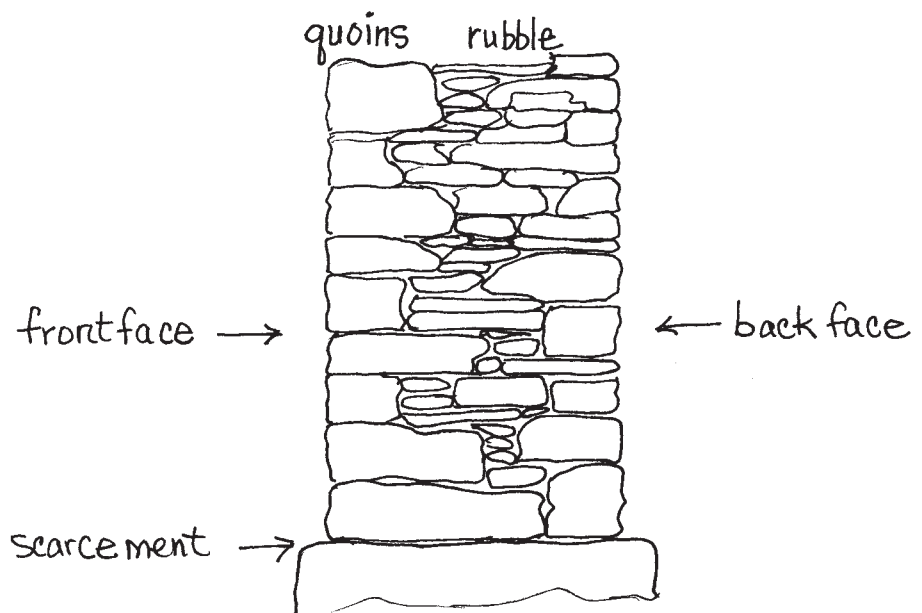 quoins rubble
front face
back face
scarcement